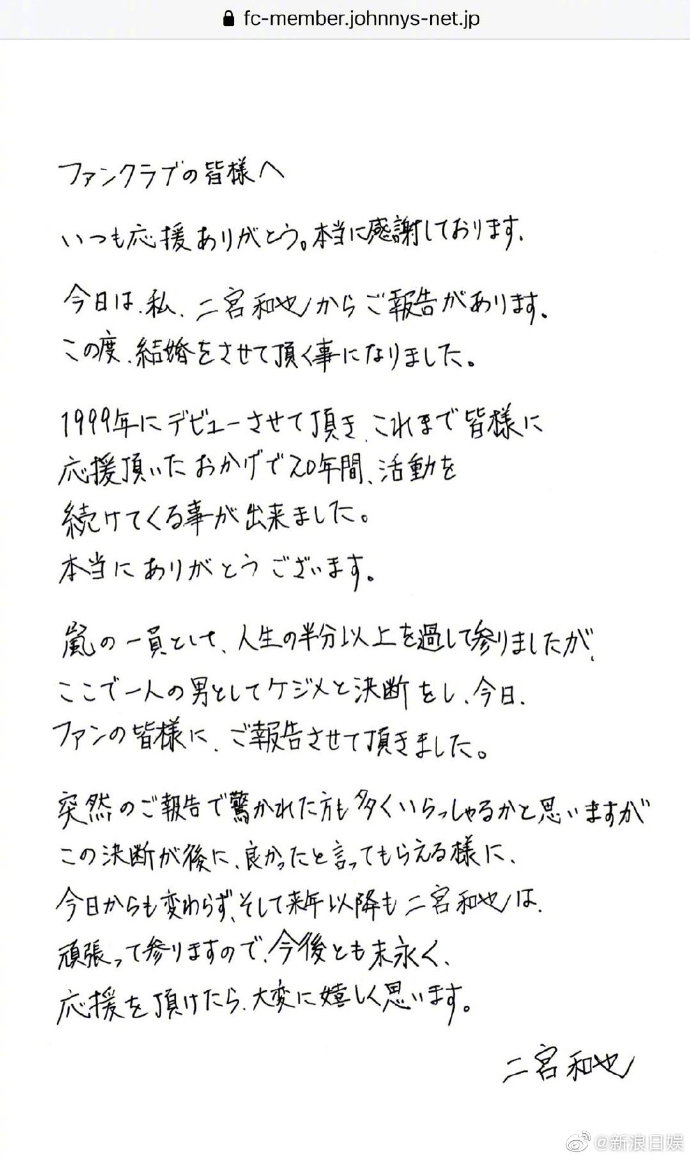 fc-member.johnnys-net.jp
ファンクラブの皆様へ
いつも応援ありがとう。本当に感謝しております。
今日は、私、二宮和也からご報告があります。
この度、結婚をさせて頂く事になりました。
1999年にデビューさせて頂き、これまで皆様に
応援頂いたおかげで20年間、活動を
続けてくる事が出来ました。
本当にありがとうございます。
嵐の一員として、人生の半分以上を過して参りましたが、
ここで一人の男としてケジメと決断をし、今日、
ファンの皆様に、ご報告させて頂きました。
突然のご報告で驚かれた方も多くいらっしゃるかと思いますが
この決断が後に、良かったと言ってもらえる様に、
今日からも変わらず、そして来年以降も二宮和也は、
頑張って参りますので、今後とも末永く、
応援を頂けたら、大変に嬉しく思います。
二宮和也
@新浪日娱